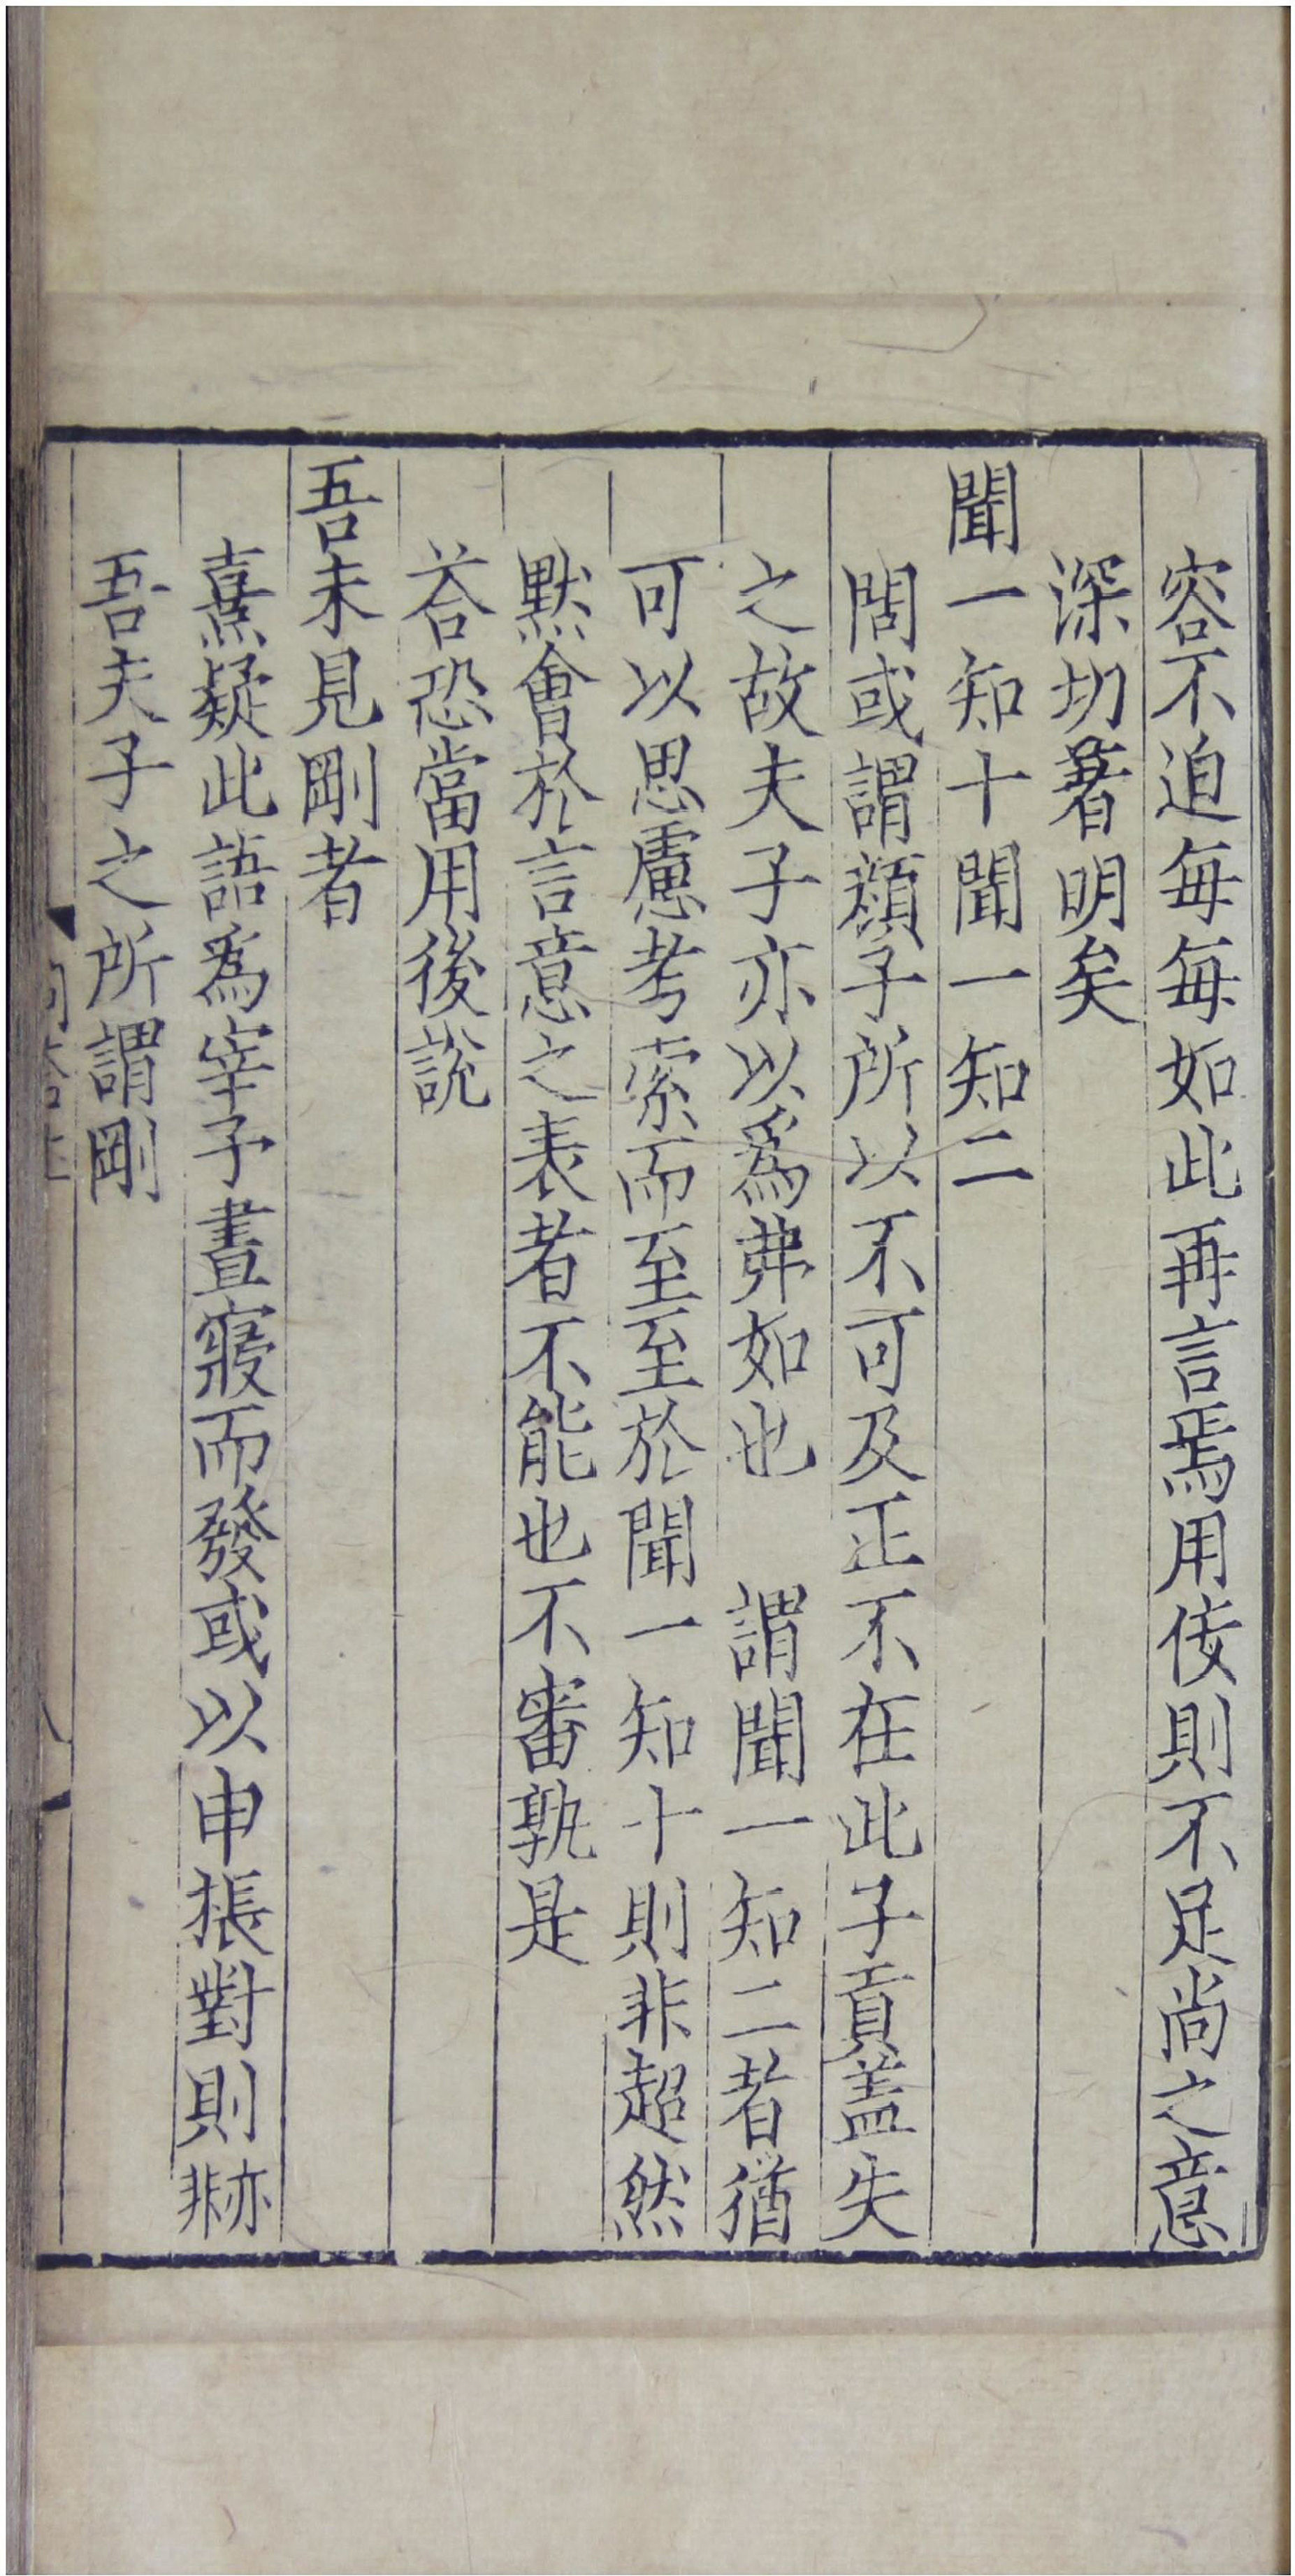 容不迫每每如此再言焉用佞則不足尚之意
深切著明矣
聞一知十聞一知二
閎或謂顔子所以不可及正不在此子貢盖失
之故夫子亦以爲弗如也　謂聞一知二者猶
可以思慮考索而至至於聞一知十則非超然
默會於言意之表者不能也不審孰是
荅恐當用後說
吾未見剛者
熹疑此語爲宰子晝寢而發或以申棖對則非
吾夫子之所謂剛